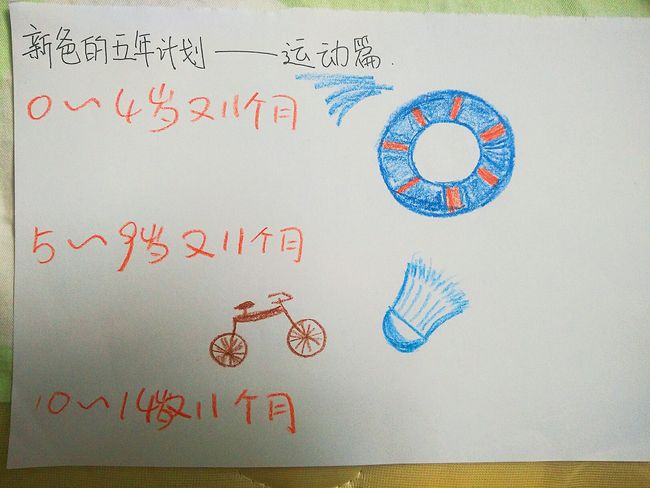 新爸的五年计划——运动篇.
0~4岁又11个月
5~9岁又11个月
10~14岁又11个月